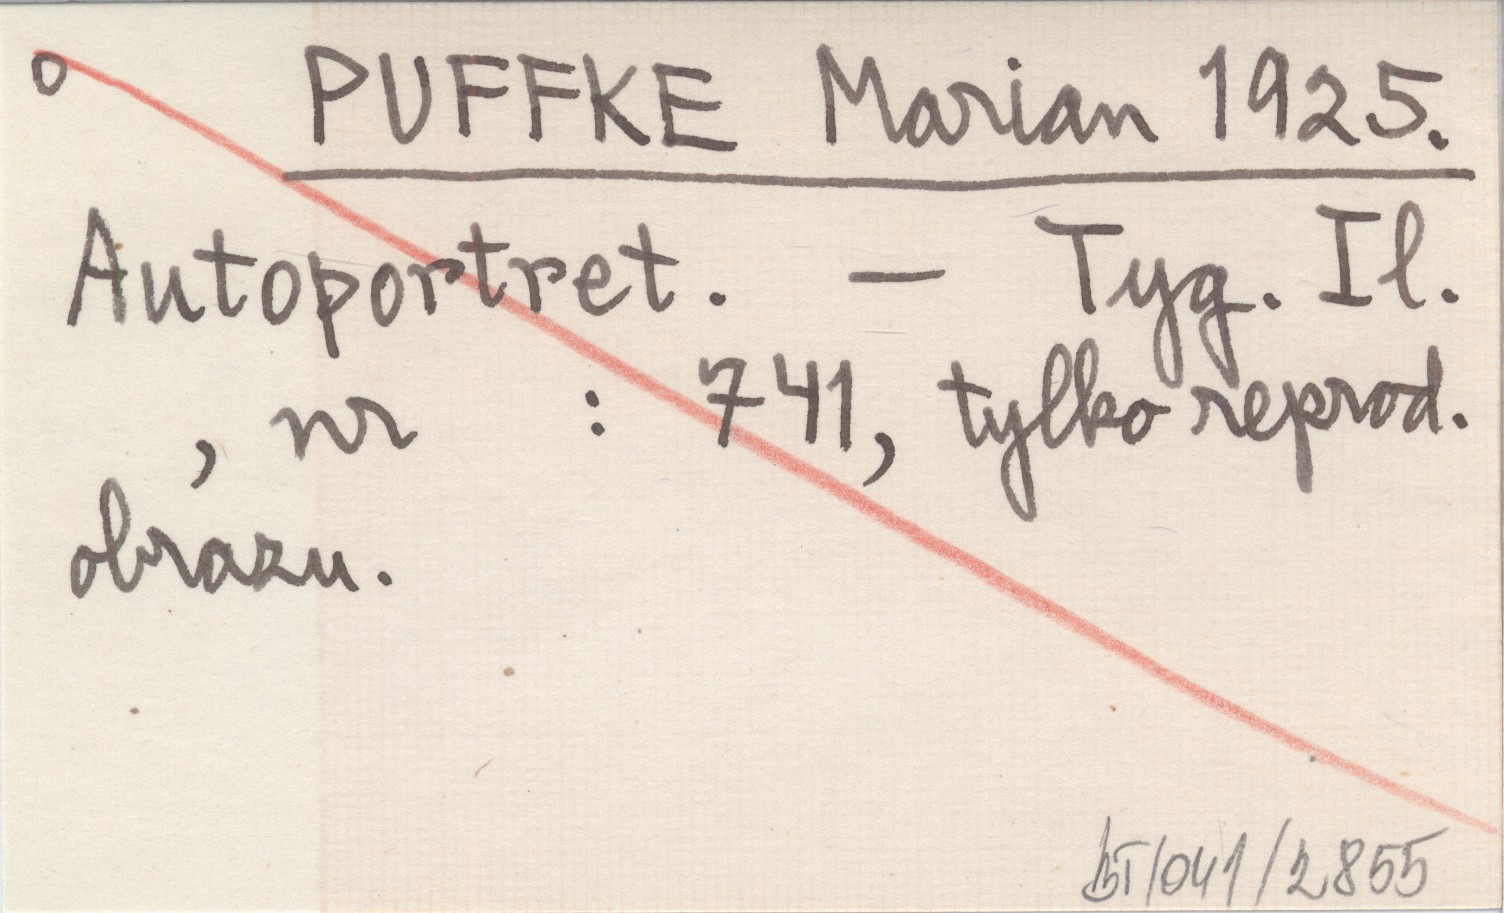 o PUFFKE Marian 1925.
Autoportret. — Tyg. Il.
, nr : 741, tylko reprod.
obrazu.
BT/041/2855